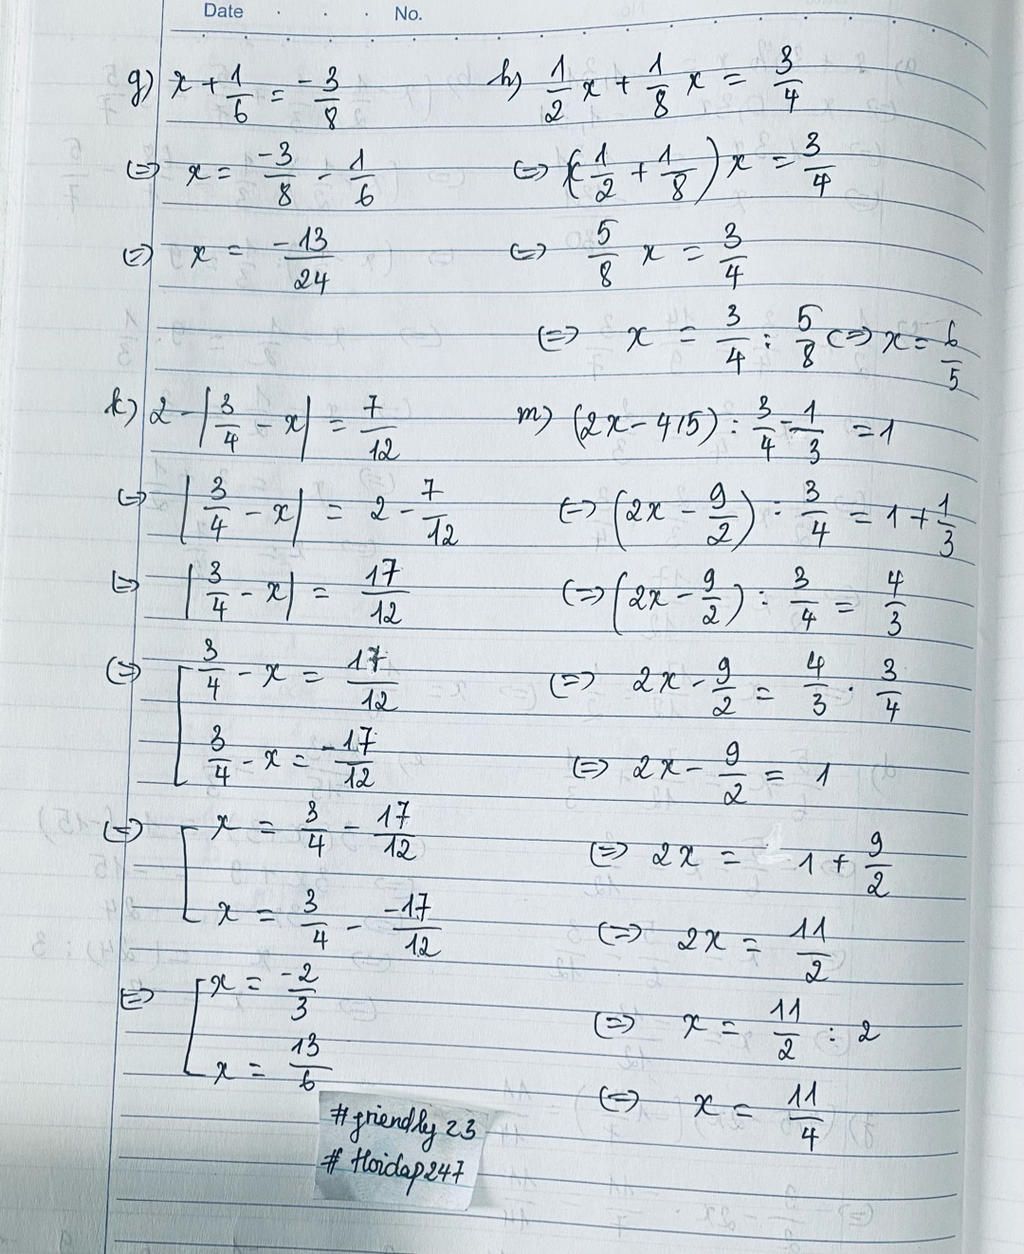 Date . . . No.
g) x + 1/6 = -3/8
(=) x = -3/8 - 1/6
(=) x = -13/24
h) 1/2 x + 1/8 x = 3/4
(=) (1/2 + 1/8) x = 3/4
(=) 5/8 x = 3/4
(=) x = 3/4 : 5/8 (=) x = 6/5
k) 2 - |3/4 - x| = 7/12
(=) |3/4 - x| = 2 - 7/12
(=) |3/4 - x| = 17/12
(=) [ 3/4 - x = 17/12
3/4 - x = -17/12
(=) [ x = 3/4 - 17/12
x = 3/4 - -17/12
(=) [ x = -2/3
x = 13/6
m) (2x - 4,5) : 3/4 - 1/3 = 1
(=) (2x - 9/2) : 3/4 = 1 + 1/3
(=) (2x - 9/2) : 3/4 = 4/3
(=) 2x - 9/2 = 4/3 . 3/4
(=) 2x - 9/2 = 1
(=) 2x = 1 + 9/2
(=) 2x = 11/2
(=) x = 11/2 : 2
(=) x = 11/4
#friendly23
# Hoidap247